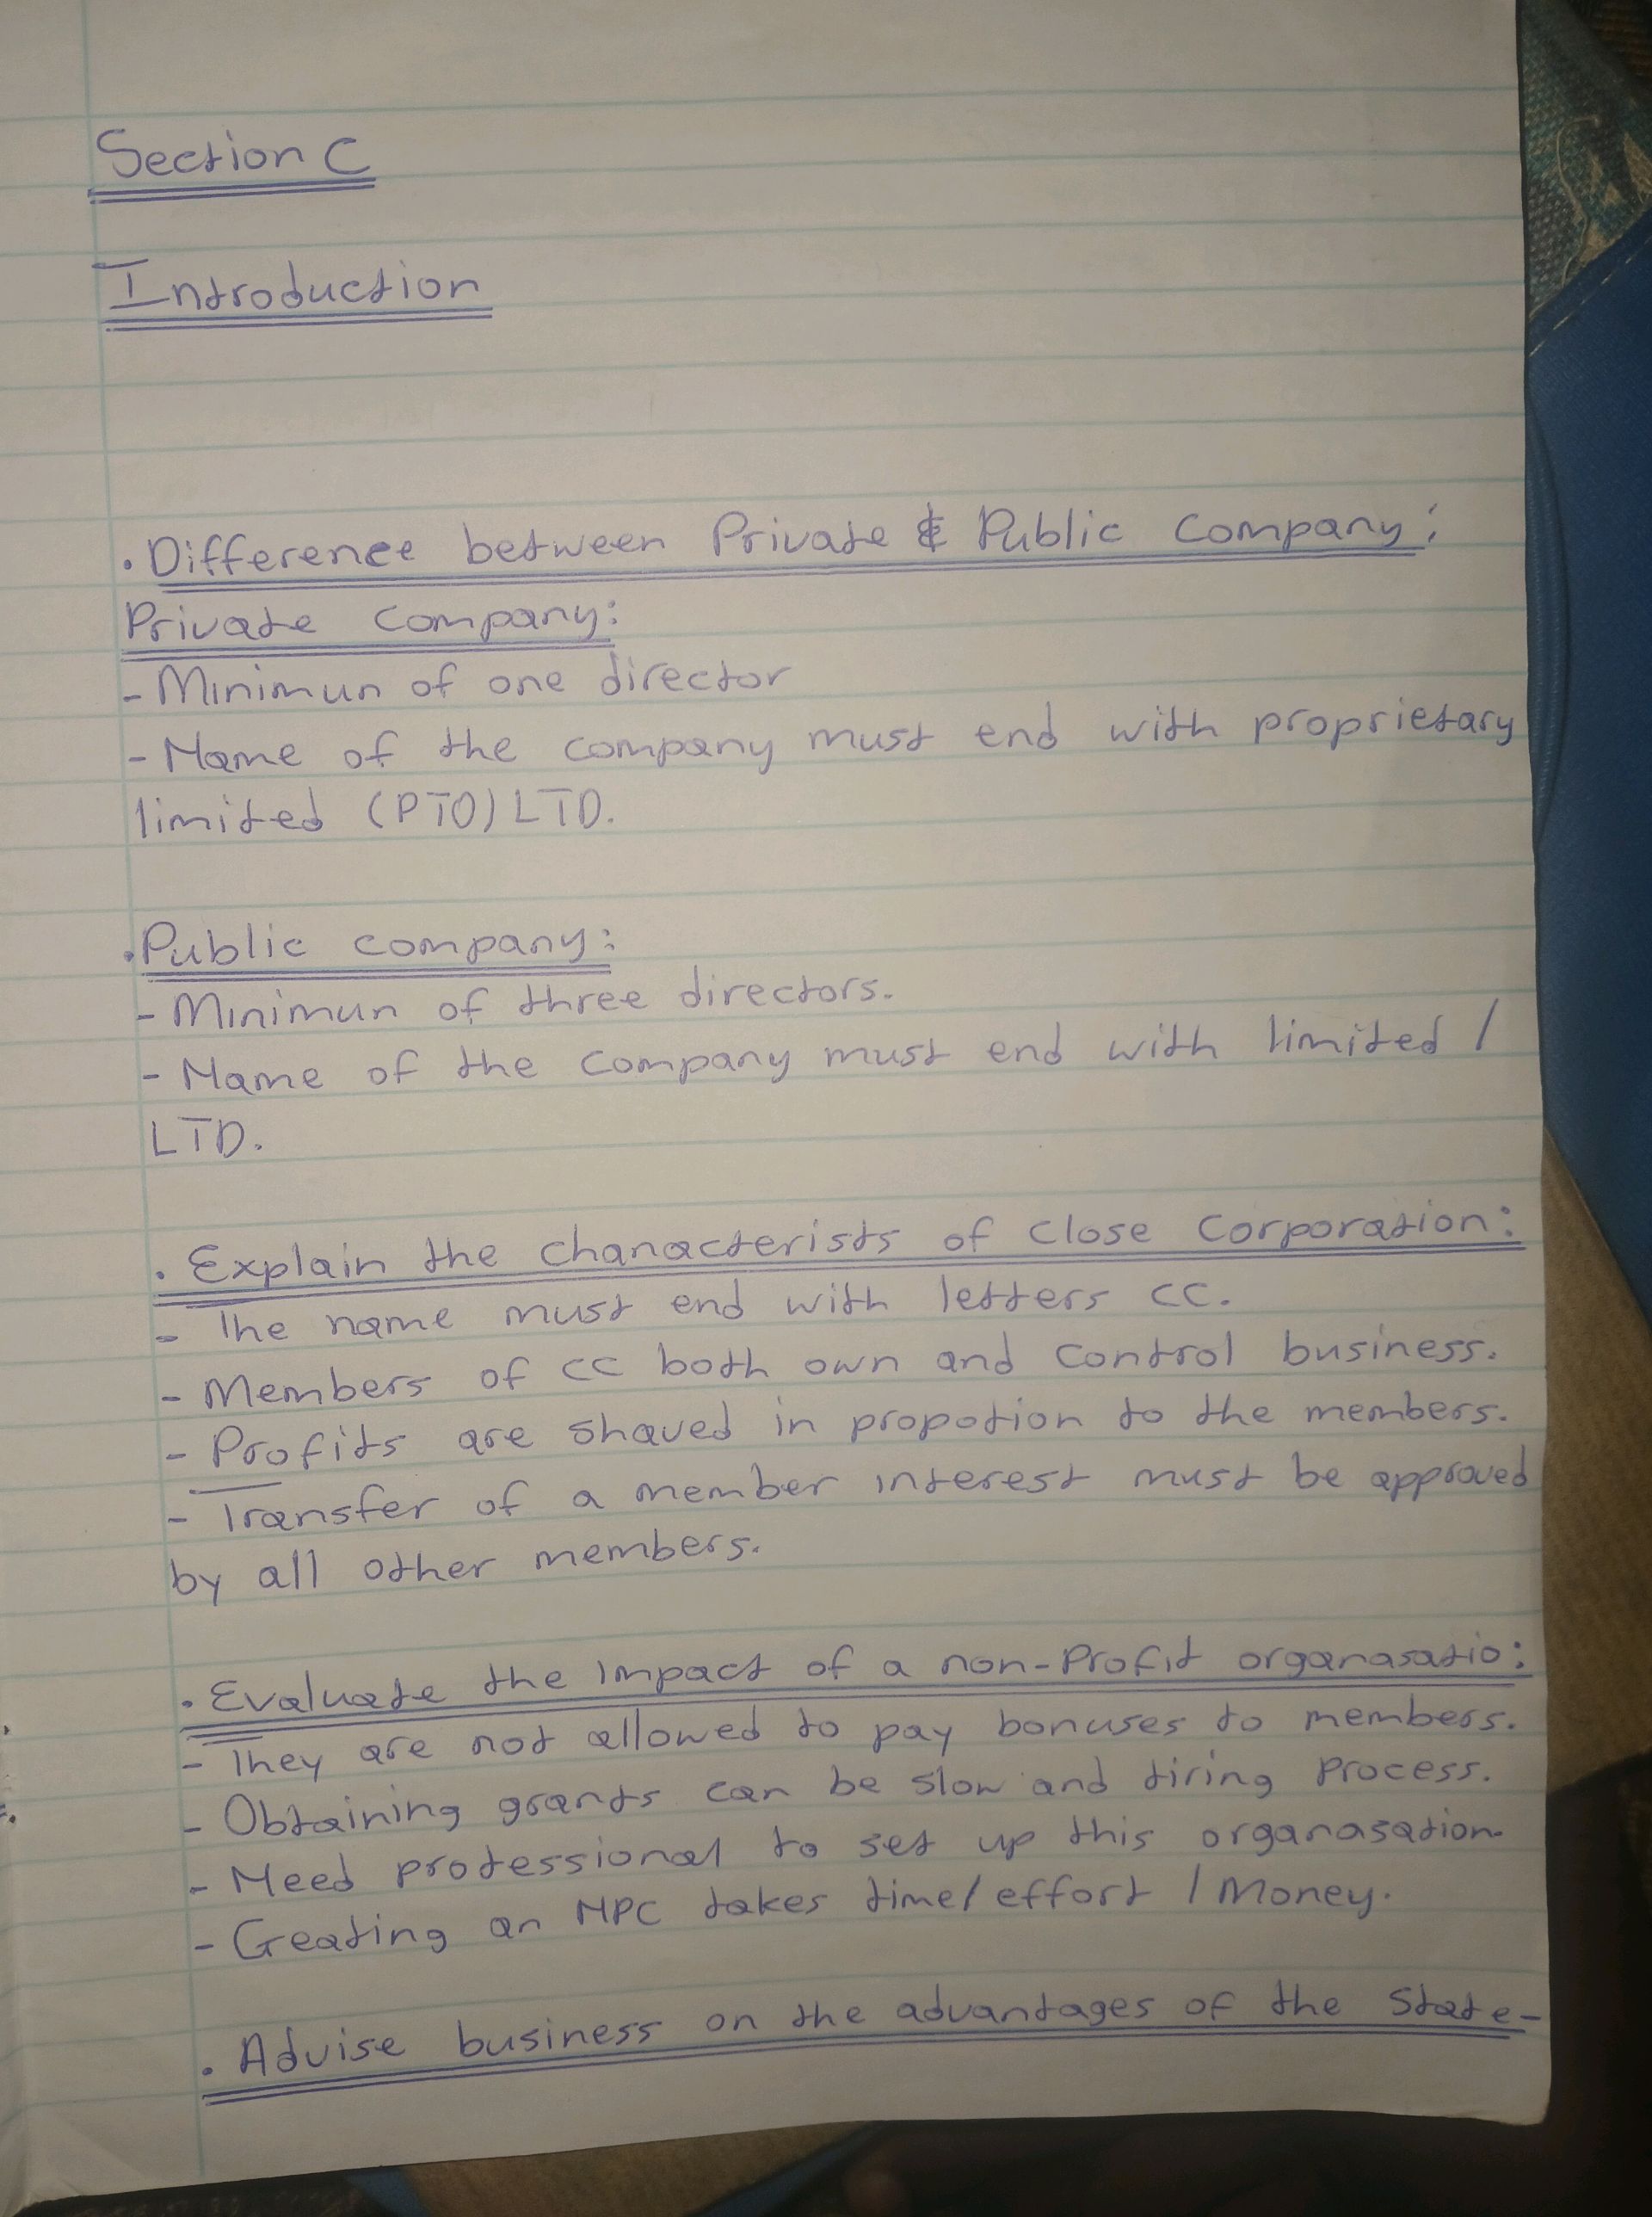 Section C
Introduction
• Difference between Private & Public Company:
Private Company:
- Minimun of one director
- Name of the company must end with proprietary
limited (PTO) LTD.
• Public company:
- Minimun of three directors.
- Name of the company must end with limited /
LTD.
• Explain the chanacterists of Close Corporation:
- The name must end with letters CC.
- Members of CC both own and control business.
- Profits are shaved in propotion to the members.
- Transfer of a member interest must be approved
by all other members.
• Evaluate the Impact of a non-Profit organasatio:
- They are not allowed to pay bonuses to members.
- Obtaining grants can be slow and tiring Process.
- Need protessional to set up this organasation.
- Greating an NPC takes time/effort / Money.
• Advise business on the advantages of the State-